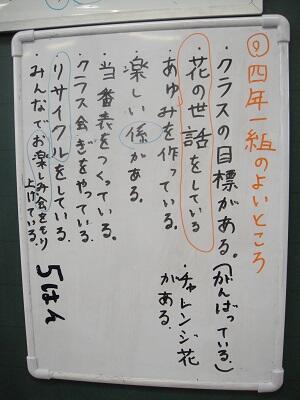 ⑨四年一組のよいところ
・クラスの目標がある。(がんばっている。)
・花の世話をしている
・チャレンジ花がある。
・あゆみを作っている。
・楽しい係がある。
・当番表をつくっている。
・クラス会ぎをやっている。
・リサイクルをしている。
・みんなでお楽しみ会をもり上げている。
5はん